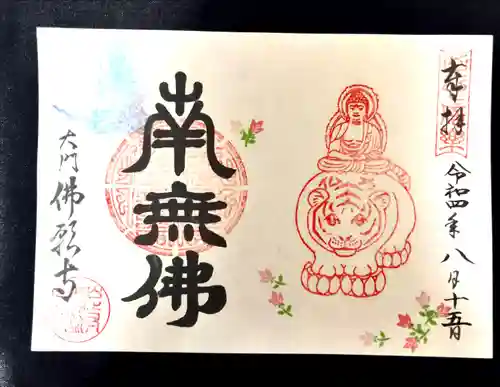 奉拝
令和四年八月十五日
南無佛
大門佛願寺